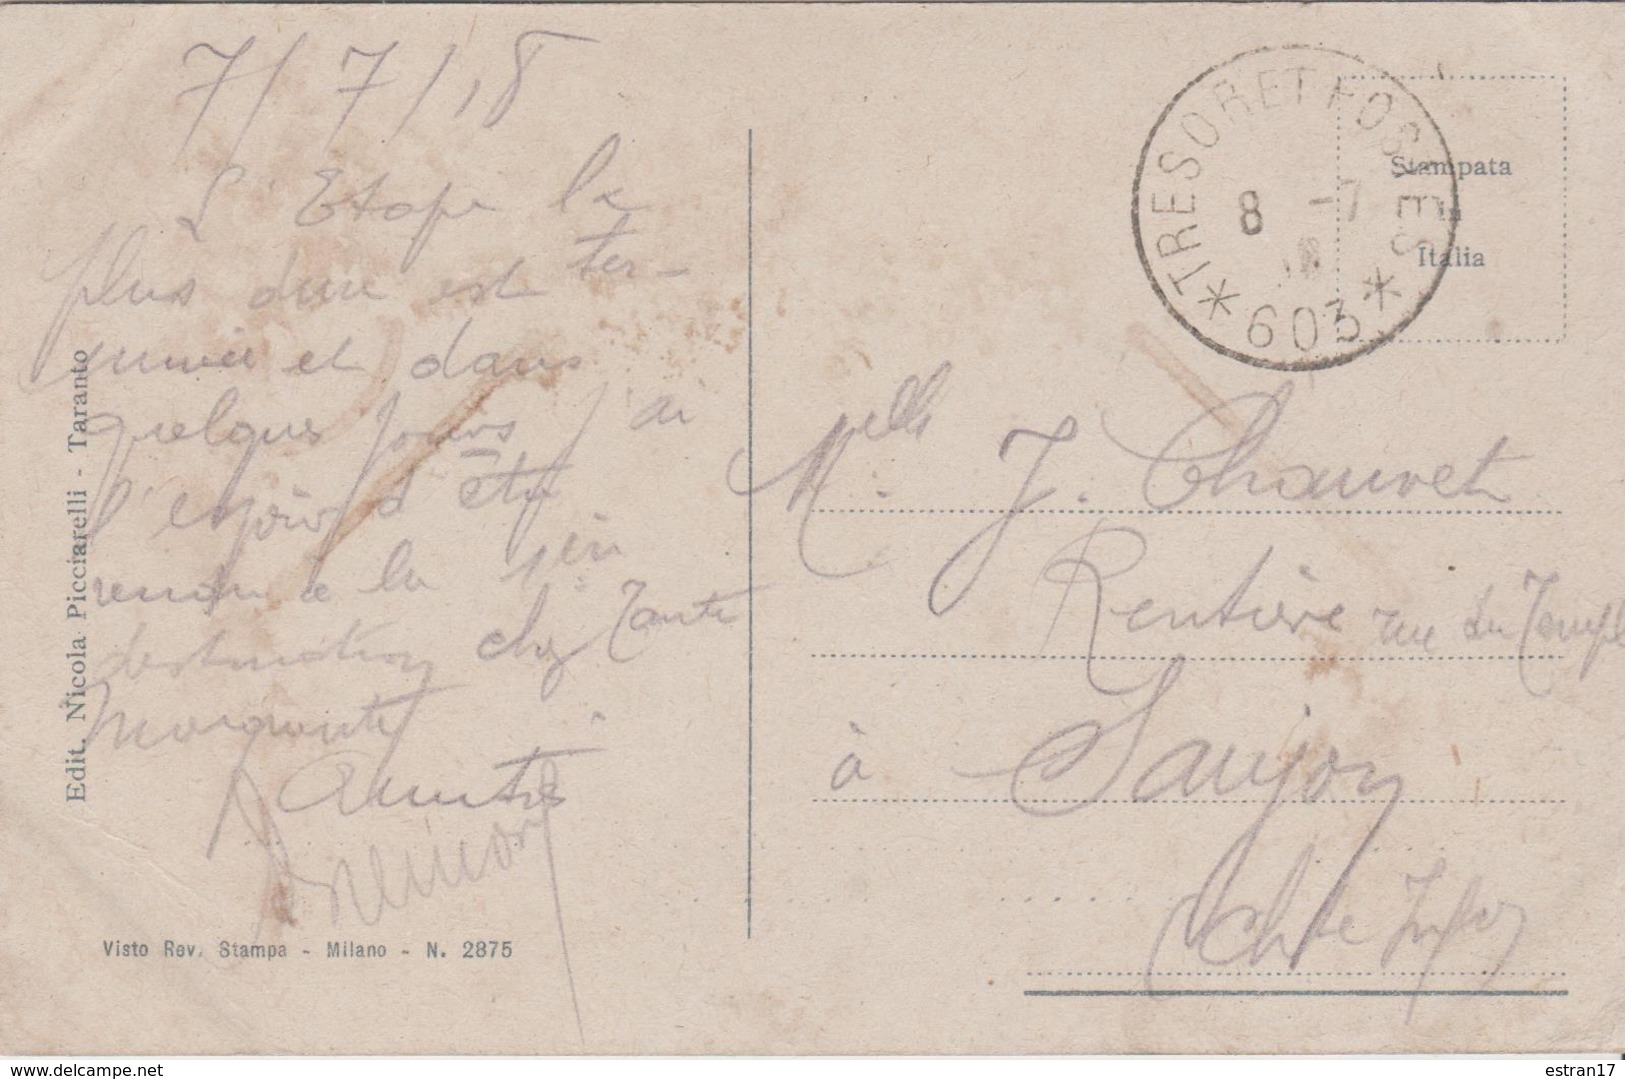 7/7/18
L'Etape la
plus dure est ter-
minée et dans
quelques jours j'ai
l'espoir d'être
rendu à la
destination chez Tante
Marguerite
Amitiés
Edit. Nicola Picciarelli - Taranto
Visto Rev. Stampa - Milano - N. 2875
* TRESOR ET POSTES *
8 -7
18
603
Stampata
in
Italia
Melle. J. Chauvet
Rentière rue du Temple
à Saujon
Chte Infre
delcampe.net
estran17